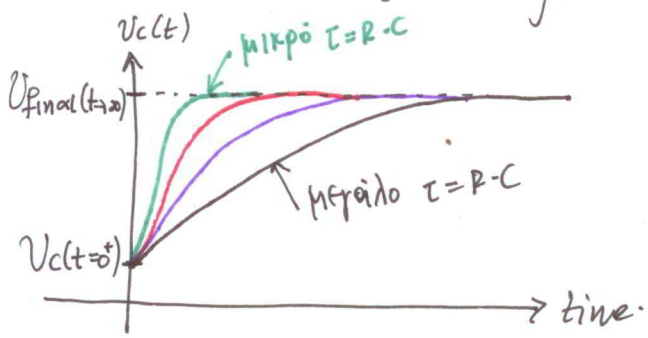 Vc(t)
μικρό τ=R·C
Vfinal(t→∞)
μεγάλο τ=R·C
Vc(t=0⁺)
time.